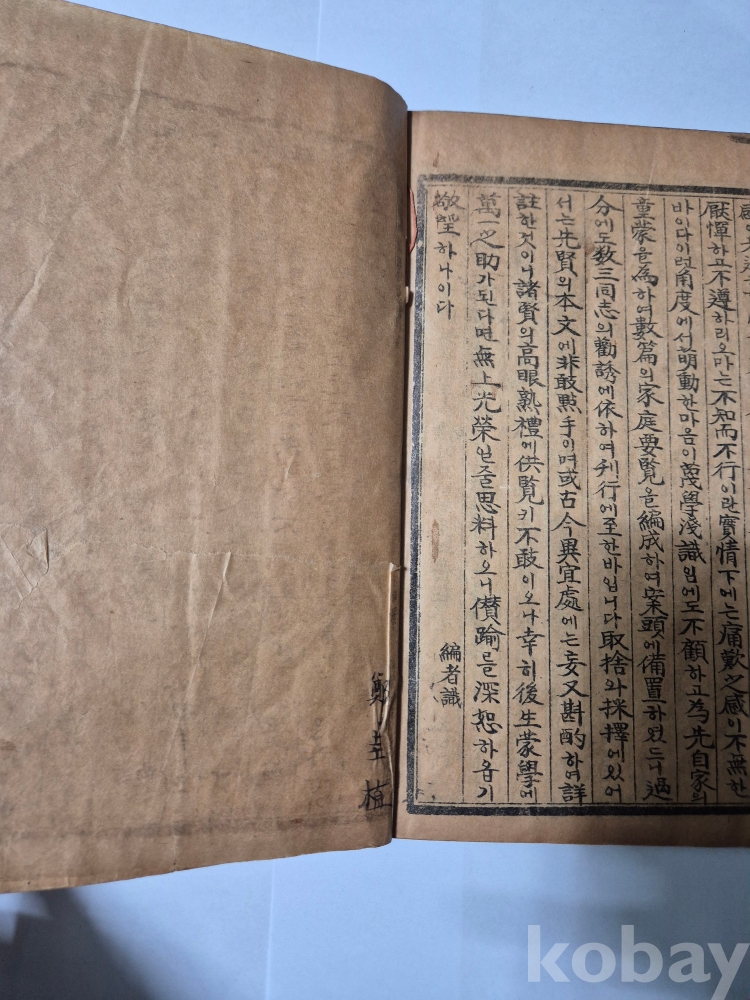 厭憚하고不遵하리오마는不知而不行이란實情下에는痛歎之感이不無한
바이다이런角度에서萌動한마음이蔑學淺識임에도不顧하고為先自家의
童蒙을為하여數篇의家庭要覽을編成하여案頭에備置하였드니過
分에도数三同志의勸誘에依하여刊行에至한바입니다取捨와採擇에있어
서는先賢의本文에非敢㸃手이며或古今異宜處에는妄又斟酌하여詳
註한것이니諸賢의高眼熟禮에供覧키不敢이오나幸히後生蒙學에
萬一之助가된다면無上光榮일줄思料하오니僣踰를深恕하옵기
敬望하나이다
編者識
鄭圭植
kobay